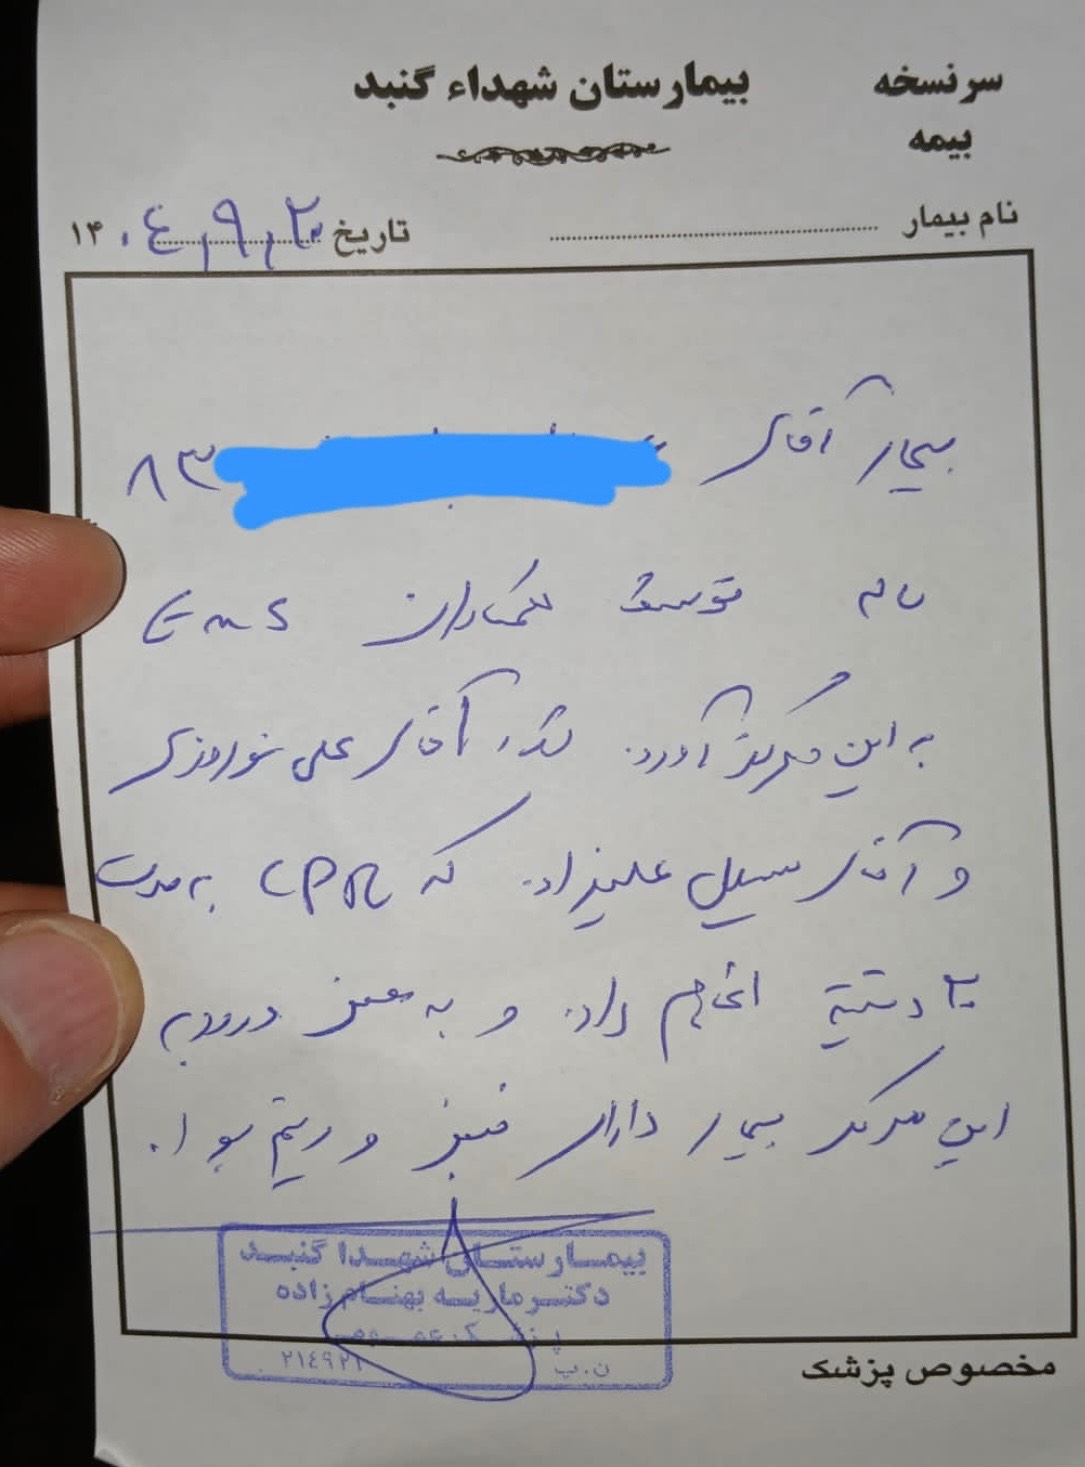 سرنسخه بیمارستان شهداء گنبد
بیمه
نام بیمار تاریخ ۱۴۰۴٫۹٫۲۰
بیمار آقای ۸۳
توسط همکاران EMS
به این مرکز آورده شد، آقای علی نوروزی
و آقای سهیل علیزاده که CPR به مدت
دقیقه انجام داده و به محض ورود به
این مرکز بیمار دارای نبض و ریتم بود.
بیمارستان شهدا گنبد
دکتر ماریه بهنام زاده
پزشک عمومی
ن.پ
مخصوص پزشک